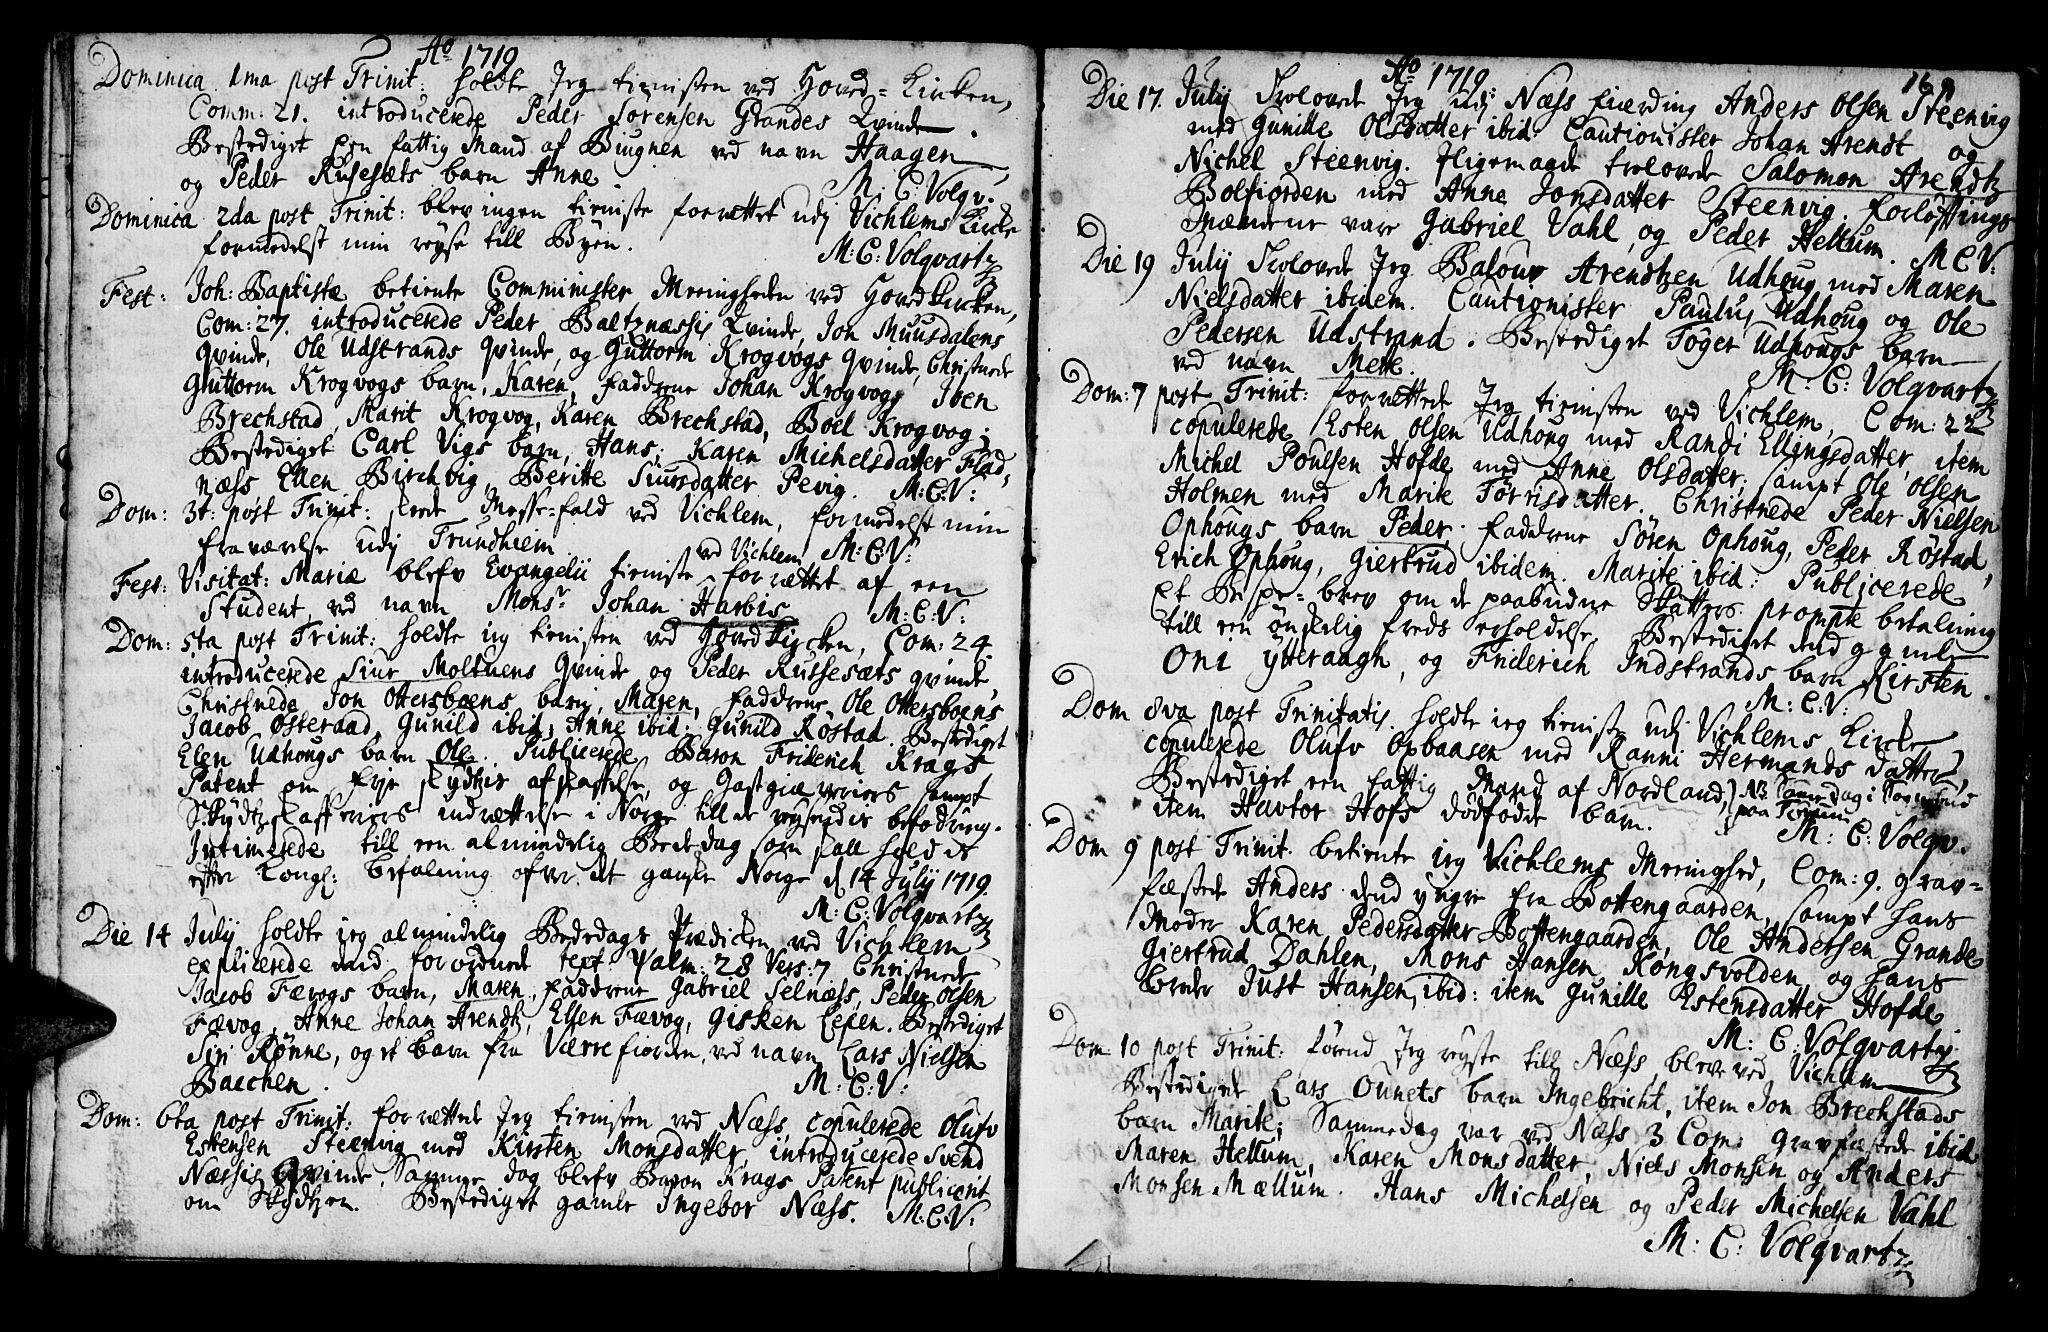 Ao 1719
Dominica 1ma post Trinit: holdte Jeg tienisten ved Hoved-Kircken,
Comm: 21. introducerede Peder Sørensen Grandes Kvinde.
Bestediget Een fattig Mand af Biugnen ved navn Haagen
og Peder Rusesæts barn Anne. M: C: Volqv:
Dominica 2da post Trinit: blev ingen tieniste forrættet udj Vichlems Kircke
formedelst min reyse till Byen. M: C: Volqvartz
Fest: Joh: Baptistæ betiente Comminister Meenigheden ved Hoved Kircken,
Com: 27. introducerede Peder Baltznæssis Kvinde, Jon Muusdalens
Qvinde, Ole Udstrands Qvinde, og Guttorm Krogvogs Qvinde, Christnede
Guttorm Krogvogs barn, Karen, faddrene Johan Krogvog, Iven
Brechstad, Marit Krogvog, Karen Brechstad, Boel Krogvog;
Bestediget Carl Vigs barn, Hans; Karen Michelsdatter Flad-
næss Ellen Birchvig, Beritte Siursdatter Pevig. M: C: V:
Dom: 3t: post Trinit: skede Messe-fald ved Vichlem, formedelst min
fraværelse udj Trundhiem. M: C: V:
Fest: Visitat: Mariæ blefv Evangelii tieniste ved Vichlem forrættet af een
Student ved navn Monsr Johan Harbis M: C: V:
Dom: 5ta post Trinit: holdte ieg tienisten ved Hoved Kircken, Com: 24.
introducerede Siur Moltuens Qvinde og Peder Russesæts qvinde,
Christnede Jon Ottersboens barn, Maren, faddrene Ole Ottersboens,
Jacob Østeraad, Gunild ibid, Anne ibid. Gunild Røstad. Bestediget
Elen Udhougs barn Ole. Publicerede Baron Friderich Krags
Patent om frje skydtzis afskaffelse, og Gastgiæveriers sampt
Skydtzskafferiers indrættelse i Norge till de reysendis befodring.
Intimerede till een almindelig Bededag som skall holdes
efter Kongl: befalning ofver det gandske Norge d 14 Julij 1719.
M: C: Volqvartz
Die 14 Julij holdte ieg almindelig Bededags Prædicken ved Vichlem
explicerede dend forordnede text Psalm: 28 Vers: 7 Christnede
Jacob Færogs barn, Maren, faddrene Gabriel Selnæss, Peder Olsen
Fævog, Anne Johan Arendtz, Ellen Fævog, Gisken Lexen. Bestediget
Siri Rønne, og et barn fra Værrefiorden, ved navn Lars Nielsen
Baschen. M: C: V:
Dom: 6ta post Trinit: forrættede Jeg tienisten ved Næss, copulerede Olufv
Estensen Steenvig med Kirsten Monsdatter, introducerede Svend
Næssis Qvinde. Samme dag blefv Baron Krags Patent publicerit
om Skydtzen. Bestediget gamle Ingebor Næss. M: C: V:
Ao 1719
Die 17. Julij Trolovede Jeg udj Næss fierding Anders Olsen Steenvig
med Gunille Olsdatter ibid: Cautionister Johan Arendt og
Nichel Steenvig. Iligemaade trolovede Salomon Arendtz
Bolfiorden med Anne Jonsdatter Steenvig. Forløftings
Mændene vare Gabriel Vahl, og Peder Hellum. M C V:
Die 19 Julij Trolovede Jeg Balour Arendtzen Udhoug med Maren
Nielsdatter ibidem. Cautionister Paulus Udhoug og Ole
Pedersen Udstrand. Bestediget Töger Udhougs barn
ved navn Merte. M: C: Volqvartz
Dom: 7 post Trinit: forrættede Jeg tienisten ved Vichlem, Com: 22
copulerede Esten Olsen Udhoug med Randi Ellingsdatter, item
Michel Poulsen Hofde med Anne Olsdatter, sampt Ole Olsen
Holmen med Marite Tørrisdatter. Christnede Peder Nielsen
Ophougs barn Peder. faddrene Søren Ophoug, Peder Røstad,
Erich Ophoug, Giertrud ibidem. Marite ibid: Publicerede
et Bispe-brev om de paabudne Skatters prompte betalning
till een ønskelig freds erholdelse. Bestediget dend gamle
Oni Ytteraagh, og Friderich Indstrands barn Kirsten.
M: C: V:
Dom 8va post Trinitatis holdte ieg tieniste udj Vichlems Kircke
copulerede Olufv Opbaasen med Ranni Hermands datter
Bestediget een fattig Mand af Nordland, NB Samme dag i
item Havtor Hofs dødfødde barn. paa
M: C: Volqv.
Dom 9 post Trinit. betiente ieg Vichlems Meenighed, Com: 9. grav-
fæstede Anders dend yngre fra Bottengaarden, sampt hans
Moder Karen Pedersdatter Bottengaarden, Ole Andersen Grande
Giertrud Dahlen, Mons Hansen Kongsvolden, og hans
broder Just Hansen, ibid: item Gunille Estensdatter Hofde
M: C: Volqvartz
Dom 10 post Trinit: førend Jeg reyste till Næss, bleve ved Vichlem
Bestediget Lars Ounets barn Ingebricht, item Jon Brechstads
barn Marite; Sammedag var ved Næss 3 Com: gravfæstede ibid
Maren Hellum, Karen Monsdatter, Niels Monsen og Anders
Monsen Mællum. Hans Michelsen og Peder Michelsen Vahl
M: C: Volqvartz